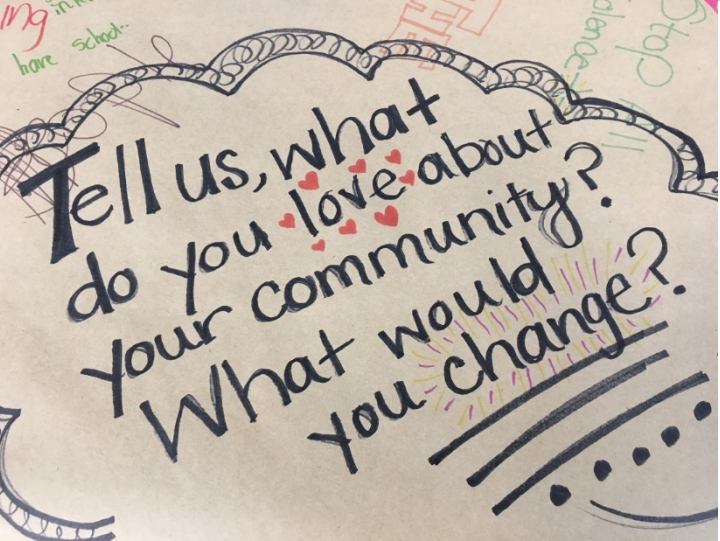 have school..
Stop
Tell us, what
do you love about
your community?
What would
you change?